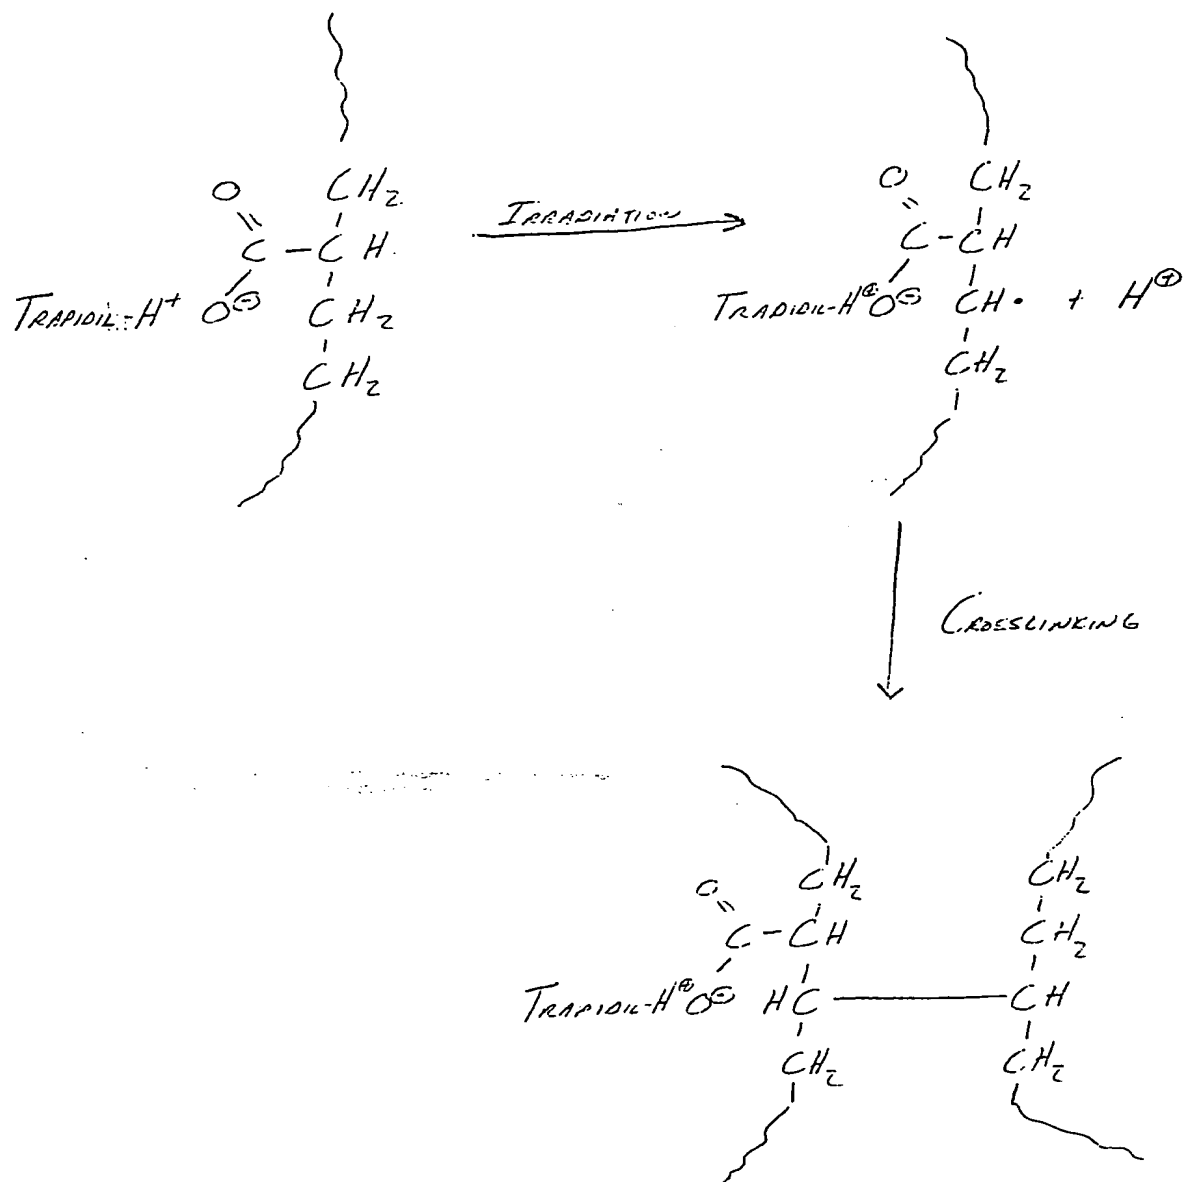 O CH2
C - CH
TRAPIDIL-H+ O⊖ CH2
CH2
IRRADIATION
O CH2
C - CH
TRAPIDIL-H⊕ O⊖ CH• + H⊕
CH2
CROSSLINKING
O CH2 CH2
C - CH CH2
TRAPIDIL-H⊕ O⊖ HC CH
CH2 CH2